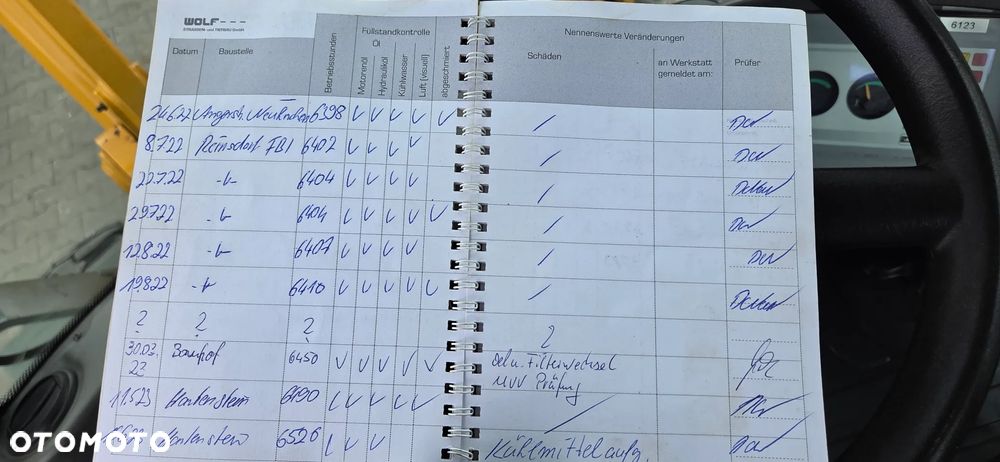 WOLF
STRASSEN- und TIEFBAU GmbH
Datum Baustelle Betriebsstunden Füllstandkontrolle Öl Motorenöl Hydrauliköl Kühlwasser Luft (visuell) abgeschmiert
Nennenswerte Veränderungen
Schäden an Werkstatt gemeldet am: Prüfer
6123
24.6.22 Neukirchen 6398 ✓ ✓ ✓ ✓ ✓ /
8.7.22 Reinsdorf FBI 6402 ✓ ✓ ✓ ✓ /
22.7.22 -"- 6404 ✓ ✓ ✓ ✓ /
29.7.22 -"- 6404 ✓ ✓ ✓ ✓ ✓ /
12.8.22 -"- 6407 ✓ ✓ ✓ ✓ /
19.8.22 -"- 6410 ✓ ✓ ✓ ✓ ✓ /
? ? ? ?
30.03.23 Bauhof 6450 ✓ ✓ ✓ ✓ ✓ Oel u. Filterwechsel
UVV Prüfung
11.5.23 Hartenstein 6490 ✓ ✓ ✓ ✓ ✓ /
Hartenstein 6526 ✓ ✓ ✓ Kühlmittel aufg.
OTOMOTO